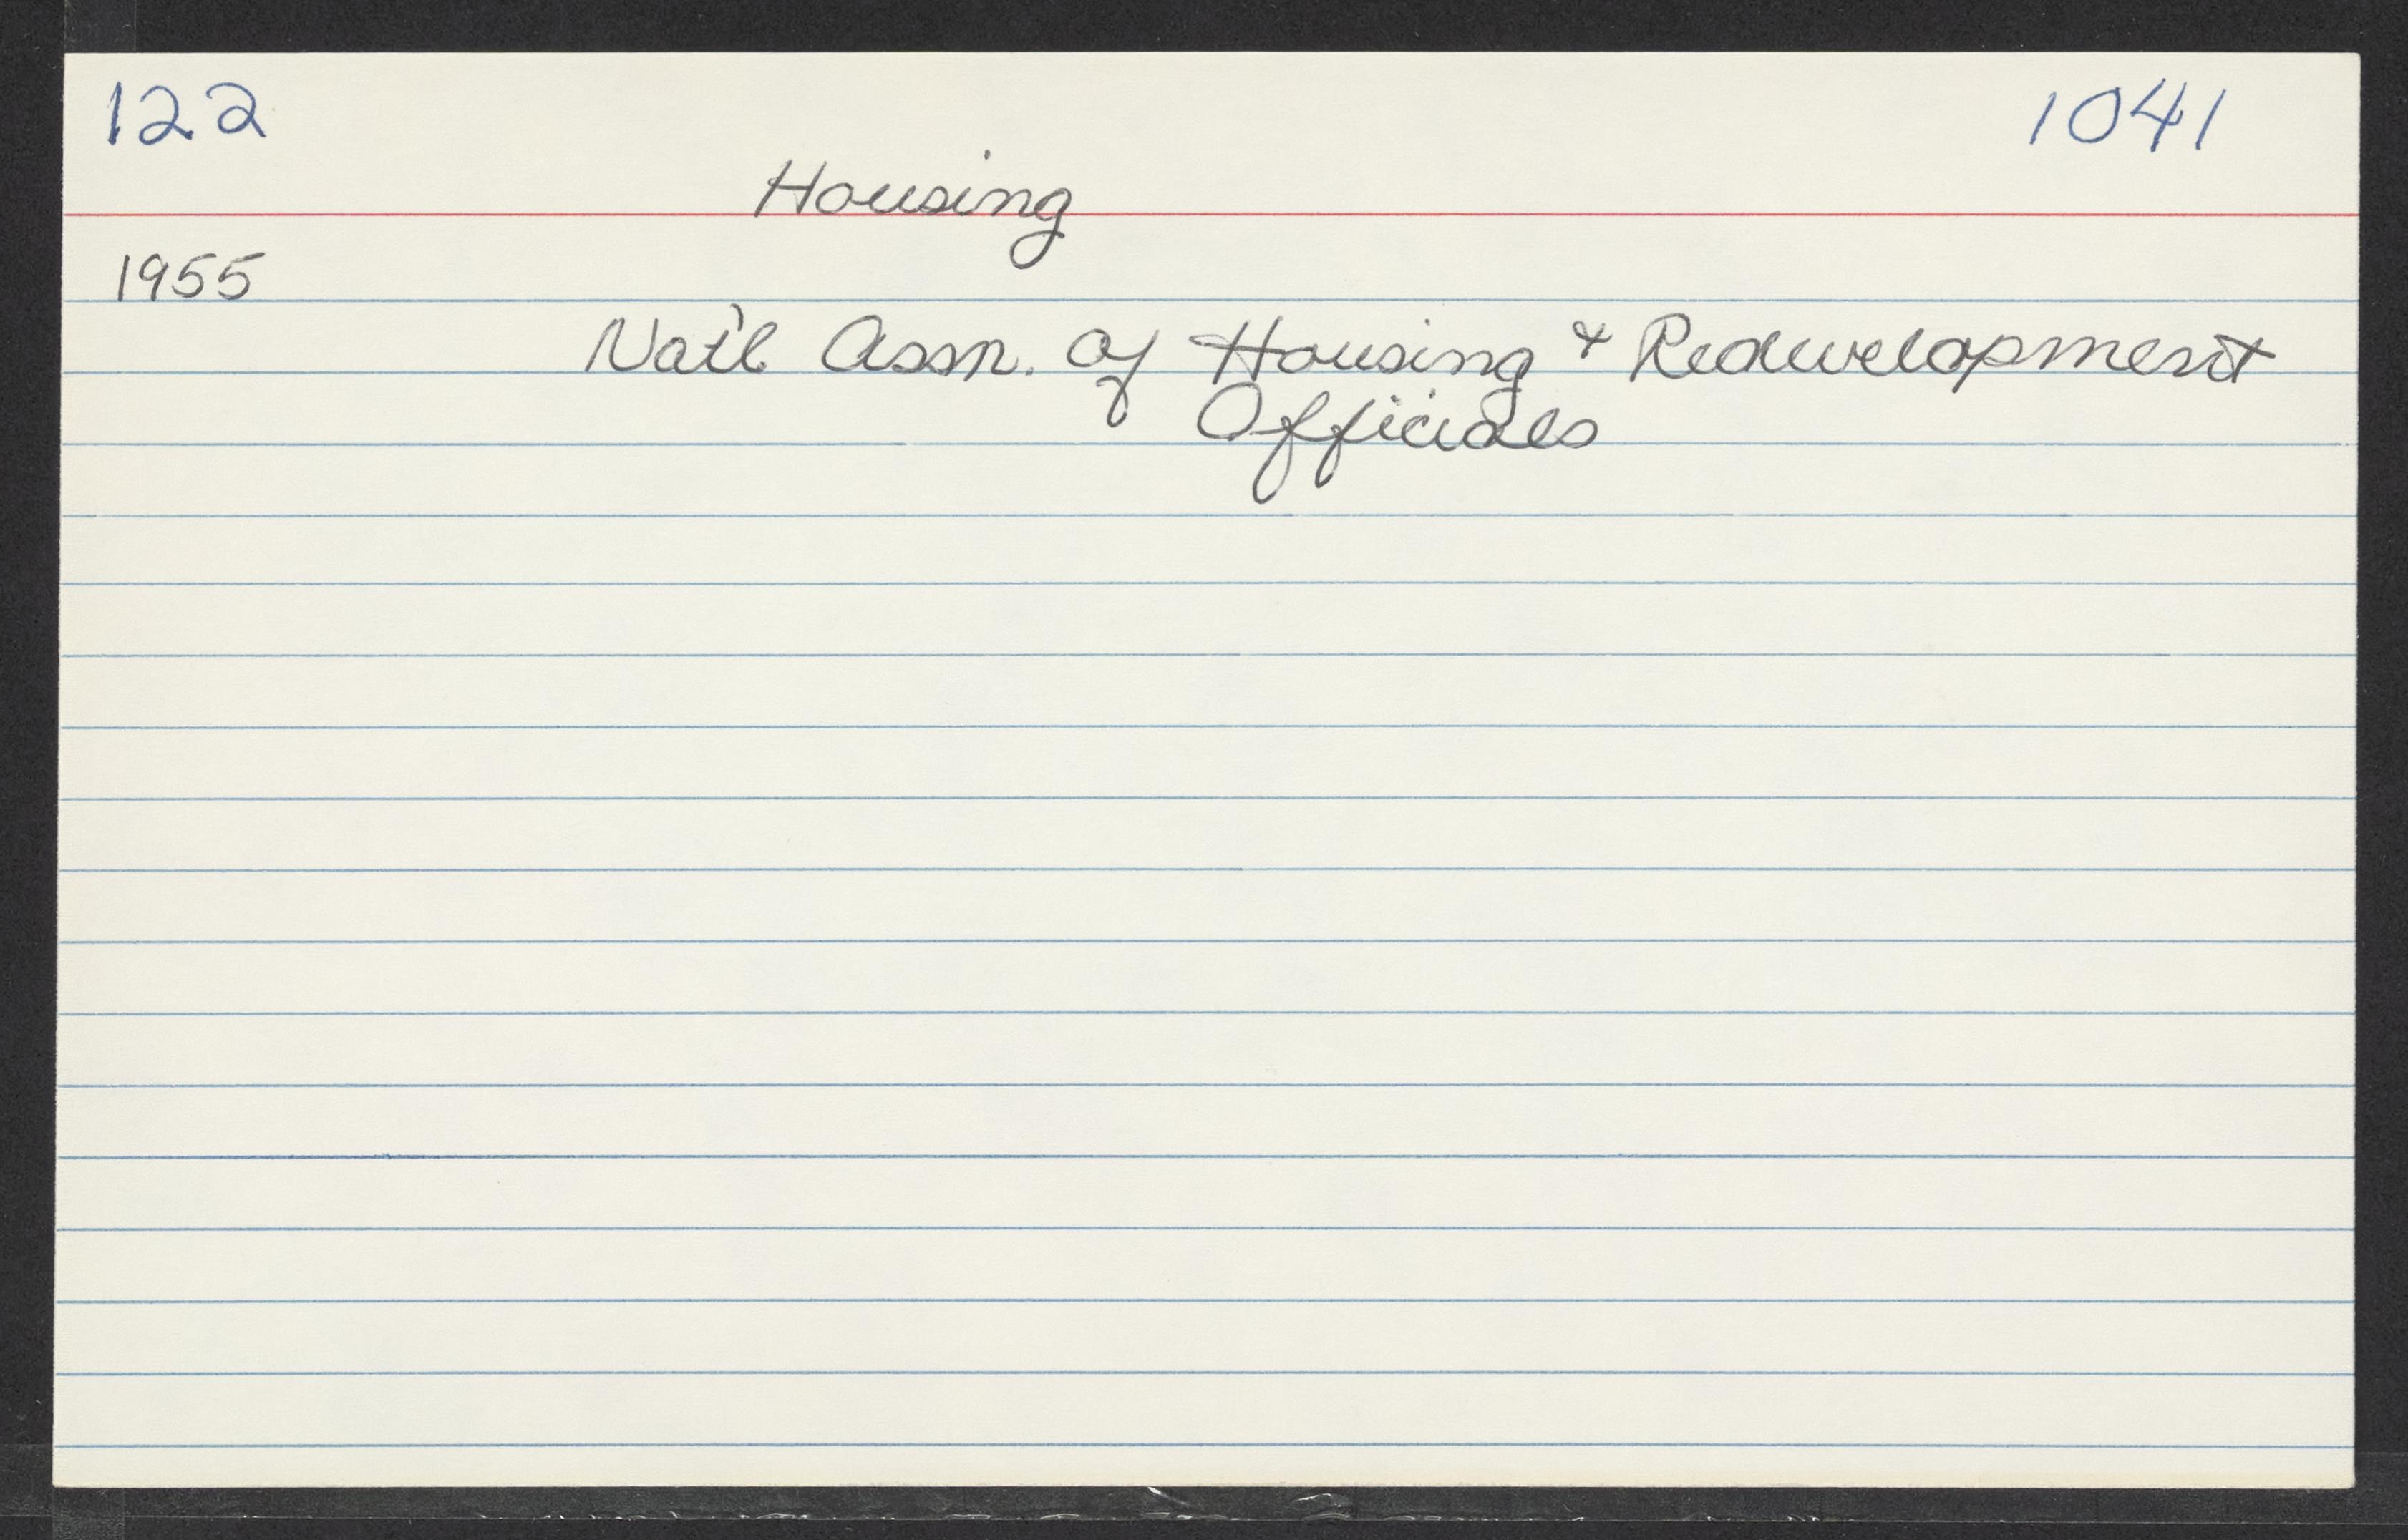 122 1041
Housing
1955
Nat'l Assn. of Housing & Redevelopment
Officials